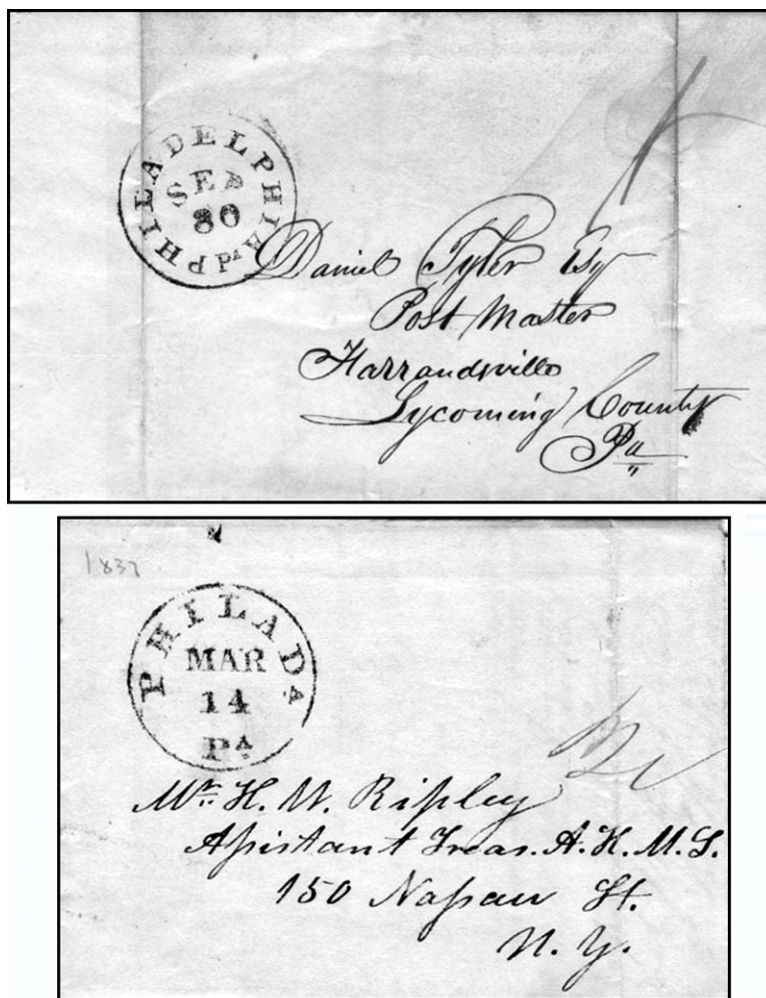 PHILADELPHIA Pa
SEP
30
Daniel Tyler Esq
Post Master
Farrandsville
Lycoming County
Pa
1837
PHILADA.
MAR
14
PA
Mr. H. W. Ripley
Assistant Treas. A. H. M. S.
150 Nassau St.
N. Y.